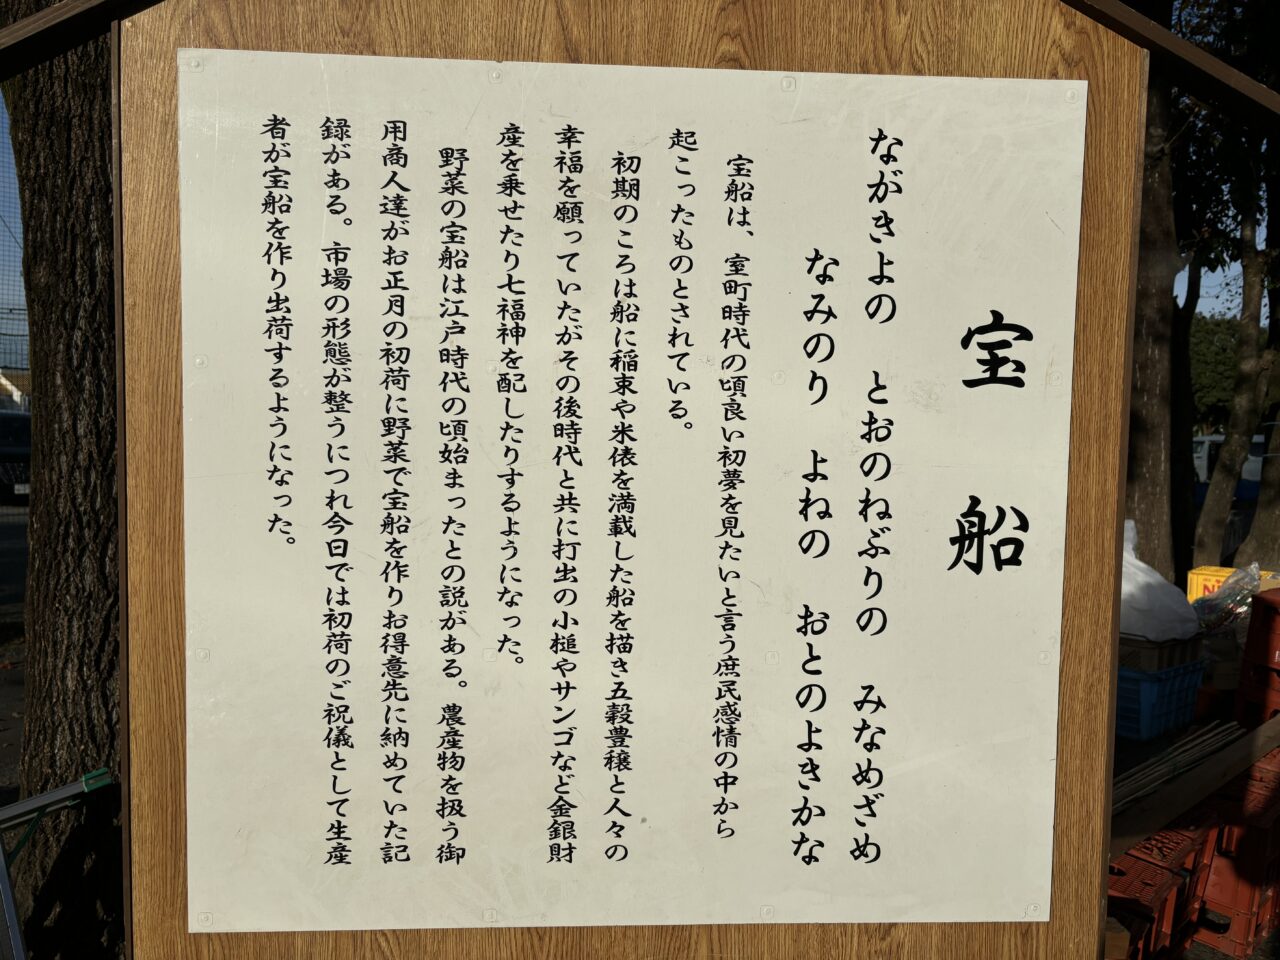 宝船
ながきよの　とおのねぶりの　みなめざめ
なみのり　よねの　おとのよきかな
宝船は、室町時代の頃良い初夢を見たいと言う庶民感情の中から
起こったものとされている。
初期のころは船に稲束や米俵を満載した船を描き五穀豊穣と人々の
幸福を願っていたがその後時代と共に打出の小槌やサンゴなど金銀財
産を乗せたり七福神を配したりするようになった。
野菜の宝船は江戸時代の頃始まったとの説がある。農産物を扱う御
用商人達がお正月の初荷に野菜で宝船を作りお得意先に納めていた記
録がある。市場の形態が整うにつれ今日では初荷のご祝儀として生産
者が宝船を作り出荷するようになった。